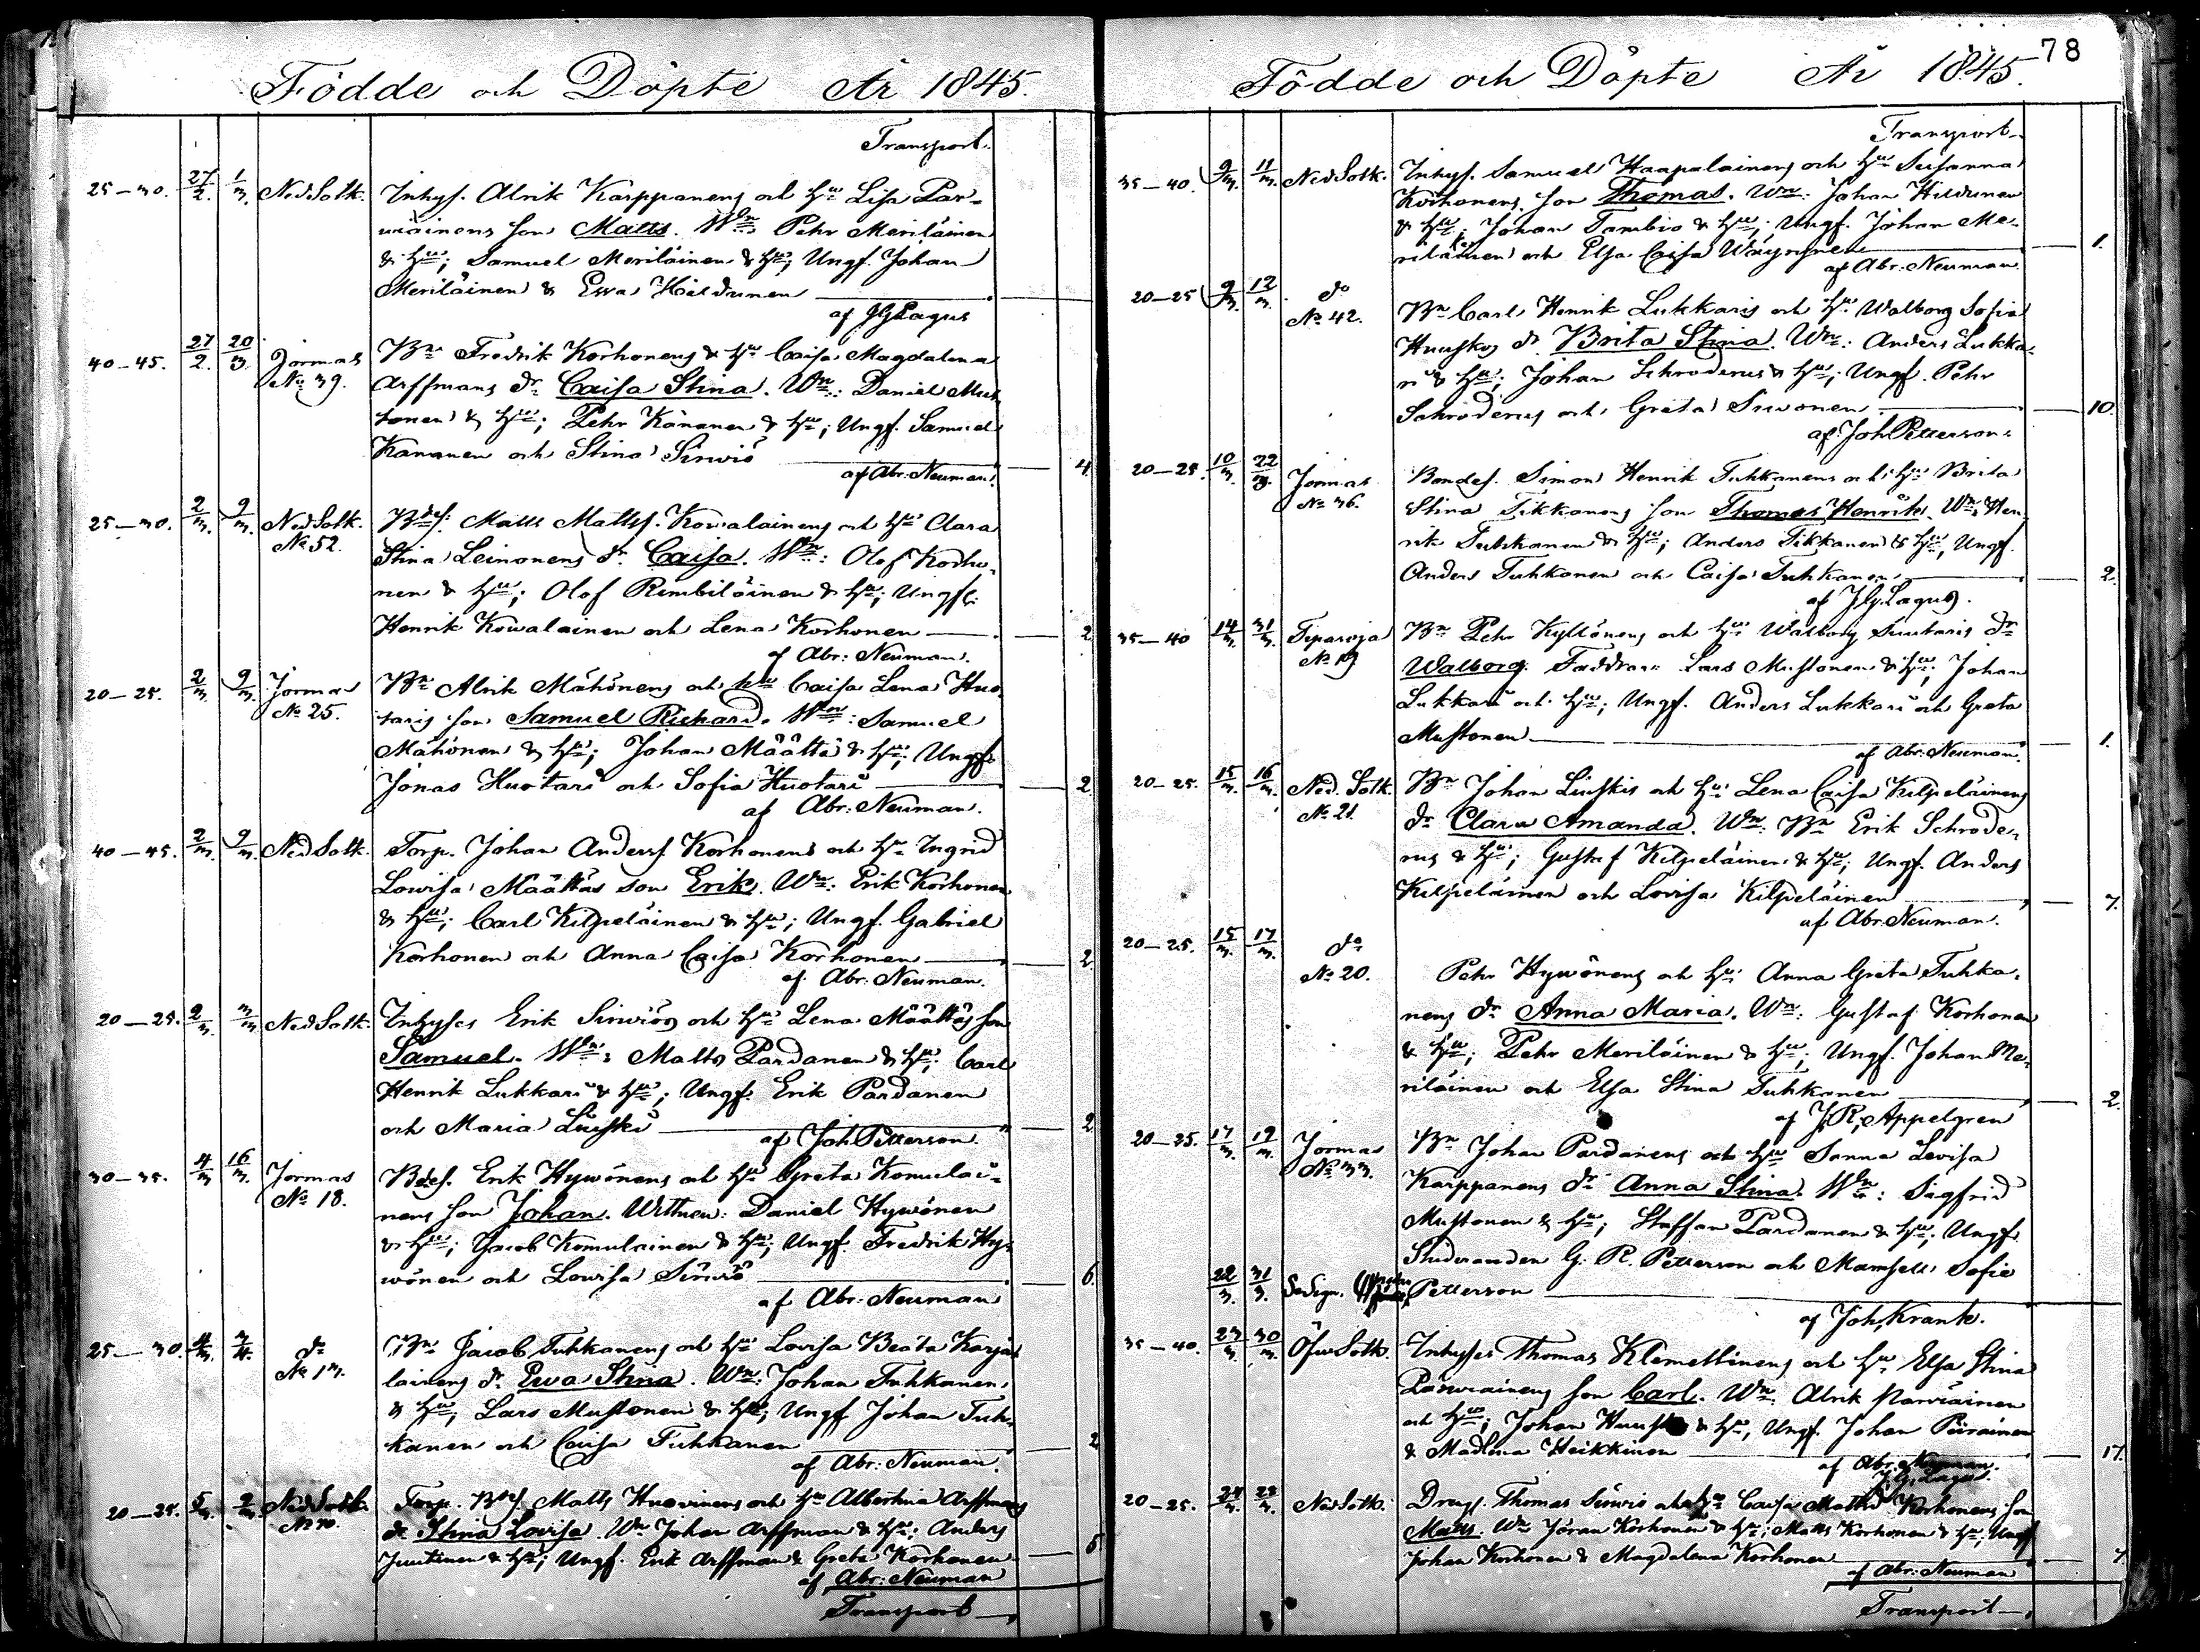 Födde och Döpte År 1845.
Transport.
25–30. 27/2. 1/3. Ned Sotk. Inhys. Alrik Karppanens och hu Lisa Par-
wiäinens son Matts. Wn: Pehr Meriläinen
& hu; Samuel Meriläinen & hu; Ungf. Johan
Meriläinen & Ewa Heldunen
af JGLagus
40–45. 27/2. 20/3. Jormas Bn Fredrik Korhonens & hu Caisa Magdalena
No 39. Arffmans dr Caisa Stina. Wn: Daniel Mus-
tonen & hu; Pehr Känanen & hu; Ungf. Samuel
Kananen och Stina Sirwiö 4
af Abr: Neuman.
25–30. 2/3. 9/3. Ned Sotk. Bdes. Matts Mattss. Kowalainens och hu Clara
No 52. Stina Leinonens dr Caisa. Wn: Olof Korho-
nen & hu; Olof Rimbiläinen & hu; Ungf.
Henrik Kowalainen och Lena Korhonen 2
af Abr: Neuman.
20–25. 2/3. 9/3. Jormas Bn Alrik Mähönens och hu Caisa Lena Huo-
No 25. taris son Samuel Richard. Wn: Samuel
Mähönen & hu; Johan Määttä & hu; Ungf.
Jonas Huotari och Sofia Huotari 2
af Abr: Neuman.
40–45. 2/3. 9/3. Ned Sotk. Torp. Johan Anderss. Korhonens och hu Ingrid
Lowisa Määttäs son Erik. Wn: Erik Korhonen
& hu; Carl Kilpeläinen & hu; Ungf. Gabriel
Korhonen och Anna Caisa Korhonen 2
af Abr: Neuman.
20–25. 2/3. 3/3. Ned Sotk. Inhyses Erik Sirwiös och hu Lena Määttäs son
Samuel. Wn: Matts Pardanen & hu; Carl
Henrik Lukkari & hu; Ungf. Erik Pardanen
och Maria Liuski 2
af Joh Petterson.
30–35. 4/3. 16/3. Jormas Bdes. Erik Hywönens och hu Greta Komulai-
No 18. nens son Johan. Wittnen: Daniel Hywönen
& hu; Jacob Komulainen & hu; Ungf. Fredrik Hy-
wönen och Lowisa Sirwiö 6.
af Abr: Neuman
25–30. 4/3. do Bn Jacob Tuhkanens och hu Lovisa Beata Karja-
No 13. lainens dr Ewa Stina. Wn: Johan Tuhkanen
& hu; Lars Mustonen & hu; Ungf Johan Tuh-
kanen och Caisa Tuhkanen 2
af Abr: Neuman.
20–25. 5/3. 9/3. Ned Sotk. Torp. Matts Huovinens och hu Albertina Arffmans
dr Stina Lovisa. Wn Johan Arffman & hu; Anders
Juntunen & hu; Ungf. Erik Arffman & Greta Korhonen 6
af Abr: Neuman
Transport
78
Födde och Döpte År 1845.
Transport
35–40. 9/3. 11/3. Ned Sotk. Inhys. Samuel Haapalainens och hu Susanna
Korhonens son Thomas. Wn: Johan Hiltunen
& hu; Johan Tambio & hu; Ungf. Johan Me-
riläinen och Elsa Caisa Wäyrynen 1.
af Abr: Neuman.
20–25 9/3. 12/3. do
No 42. Bn Carl Henrik Lukkaris och hu Walborg Sofia
Huuskos dr Brita Stina. Wn: Anders Lukka-
ri & hu; Johan Schroderus & hu; Ungf. Pehr
Schroderus och Greta Siwonen 10.
af Joh Petterson.
20–25 10/3. 22/3. Jormas Bondes. Simon Henrik Tuhkanens och hu Brita
No 36. Stina Tikkanens son Thomas Henrik. Wn: Hen-
rik Tuhkanen & hu; Anders Tikkanen & hu; Ungf.
Anders Tuhkanen och Caisa Tuhkanen 2.
af JG.Lagus.
35–40 14/3. 31/3. Tiparoja Bn Pehr Kyllönens och hu Walborg Suutaris dr
No 19 Walborg. Faddrar: Lars Mustonen & hu; Johan
Lukkari och hu; Ungf. Anders Lukkari och Greta
Mustonen 1.
af Abr: Neuman.
20–25. 15/3. 16/3. Ned. Sotk. Bn Johan Liuskis och hu Lena Caisa Kilpeläinens
No 21. dr Clara Amanda. Wn: Bn Erik Schrode-
rus & hu; Gustaf Kilpeläinen & hu; Ungf. Anders
Kilpeläinen och Lovisa Kilpeläinen 7.
af Abr: Neuman.
20–25. 15/3. 17/3. do
No 20. Pehr Hywönens och hu Anna Greta Tuhka-
nens dr Anna Maria. Wn: Gustaf Korhonen
& hu; Pehr Meriläinen & hu; Ungf. Johan Me-
riläinen och Elsa Stina Tuhkanen 2.
af J.R. Appelgren
20–25. 17/3. 19/3. Jormas Bn Johan Pardanens och hu Sanna Lovisa
No 33. Karppanens dr Anna Stina. Wn: Sigfrid
Mustonen & hu; Staffan Pardanen & hu; Ungf.
Studeranden G. R. Petterson och Mamsell Sofie
22/3. 31/3. Petterson
af Joh, Krank.
35–40. 23/3. 30/3. Öfw Sotk. Inhyses Thomas Klemettinens och hu Elsa Stina
Parwiainens son Carl. Wn: Alrik Parwiainen
och hu; Johan & hu, Ungf. Johan Piirainen
& Madlena Heikkinen 17
af Abr: Neuman.
J.G. Lagus.
20–25. Ned Sotk. Dreng. Thomas Sirwiö och hu Caisa Korhonens son
Matts. Wn Jöran Korhonen & hu; Matts Korhonen & hu; Ungf
Johan Korhonen & Magdalena Korhonen 7
af Abr: Neuman
Transport